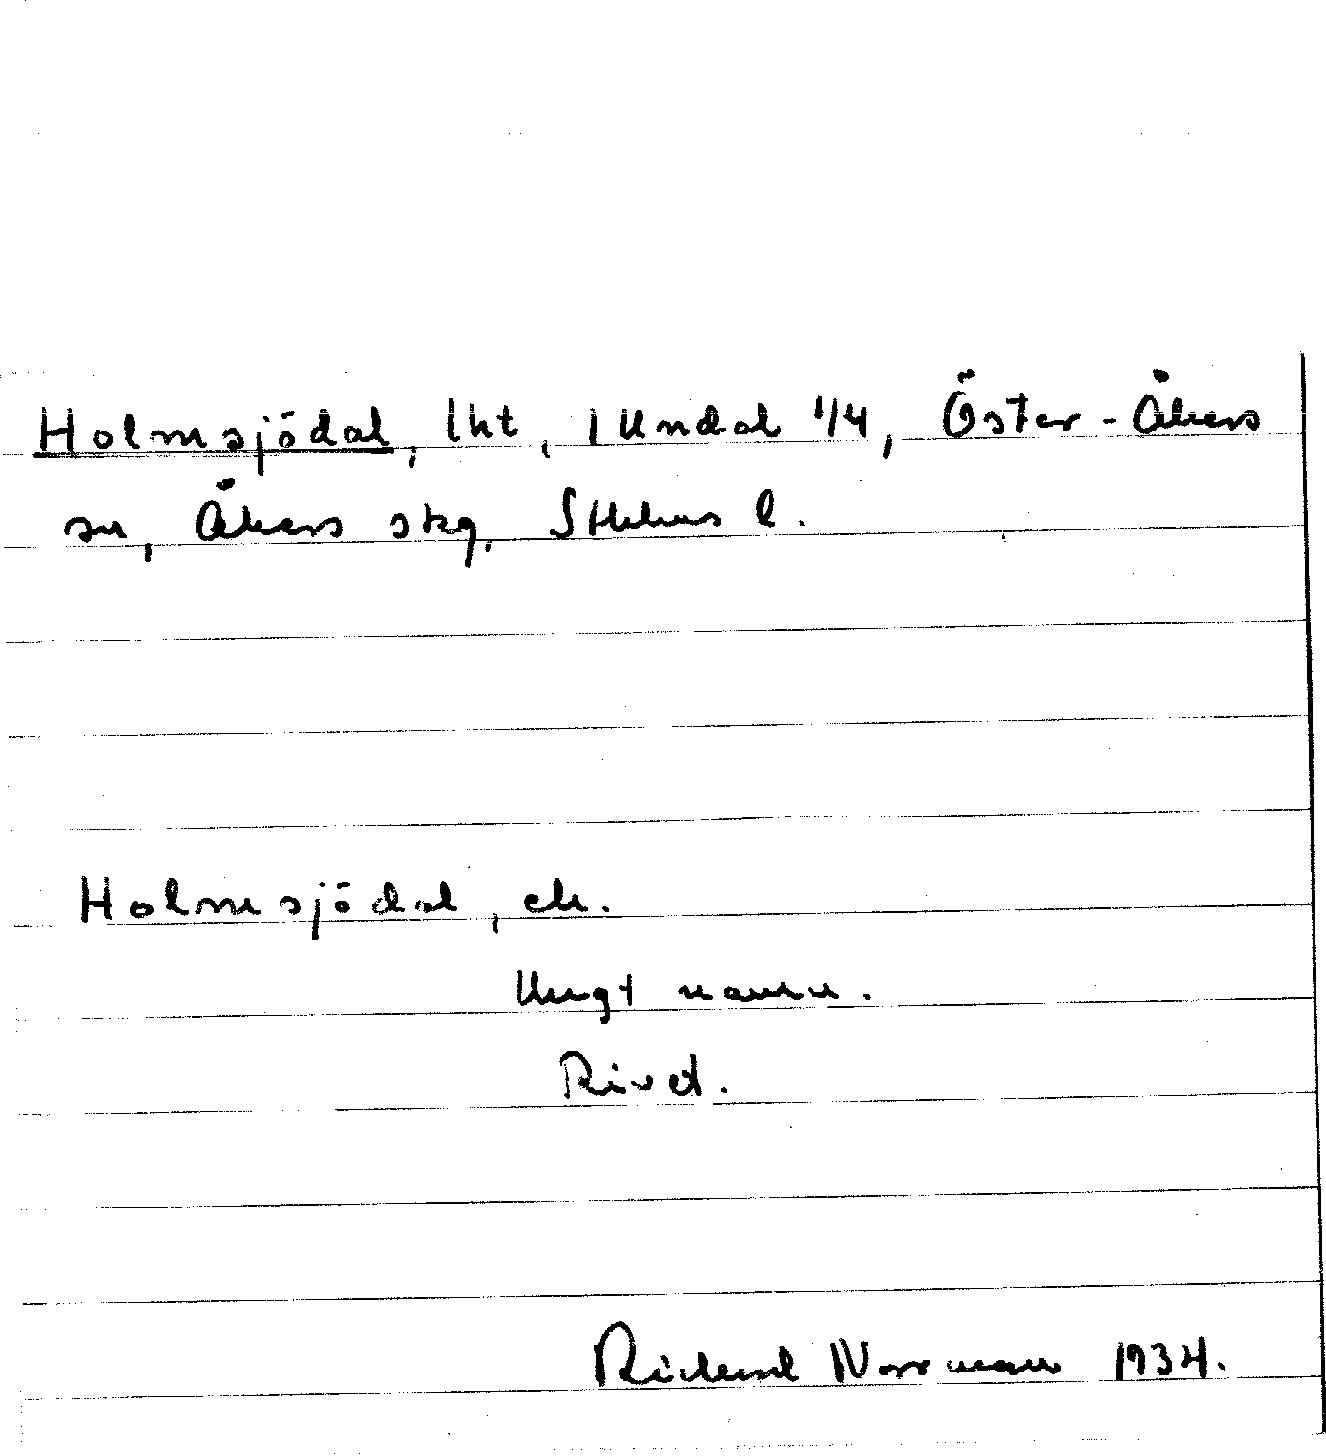 Holmsjödal, lht, 1 Undal 1/4, Öster-Åkers
sn, Åkers skg. Sthlms l.
Holmsjödal, ek.
Ungt namn.
Rivet.
Richard Norrman 1934.